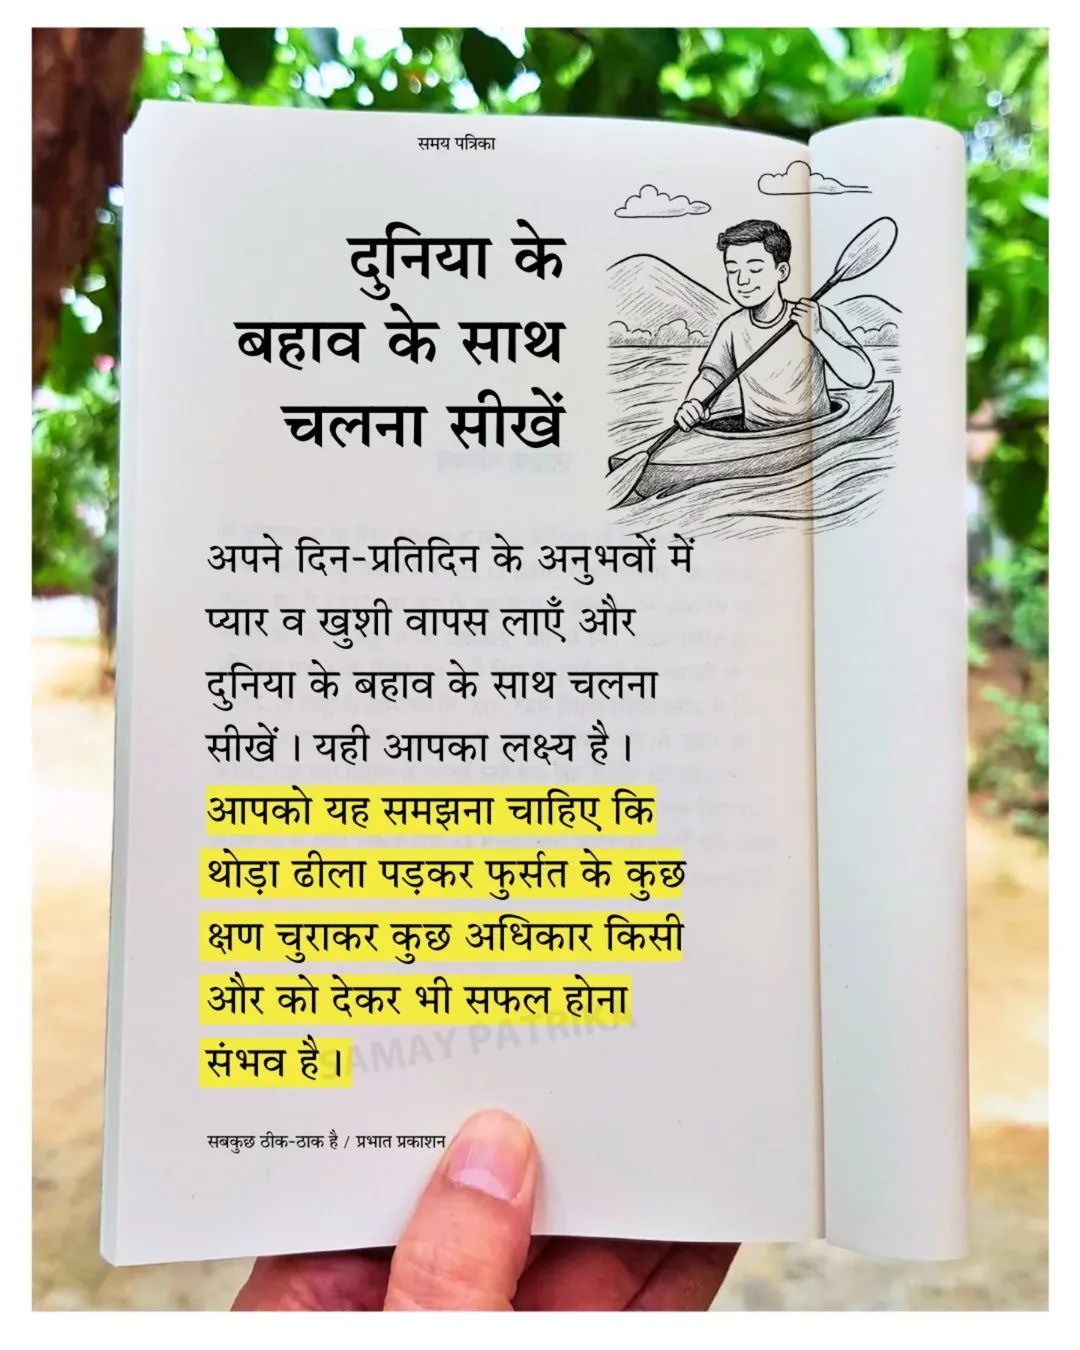 समय पत्रिका
दुनिया के
बहाव के साथ
चलना सीखें
अपने दिन-प्रतिदिन के अनुभवों में
प्यार व खुशी वापस लाएँ और
दुनिया के बहाव के साथ चलना
सीखें। यही आपका लक्ष्य है।
आपको यह समझना चाहिए कि
थोड़ा ढीला पड़कर फुर्सत के कुछ
क्षण चुराकर कुछ अधिकार किसी
और को देकर भी सफल होना
संभव है।
SAMAY PATRIKA
सबकुछ ठीक-ठाक है / प्रभात प्रकाशन